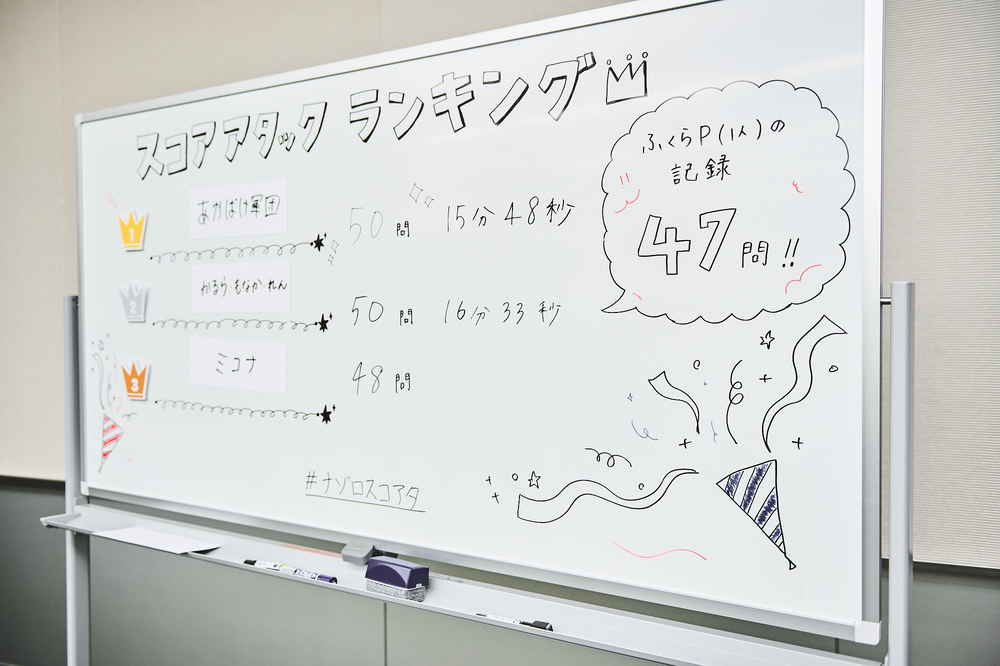 スコアアタック ランキング
ふくらP(1人)の
記録
47問!!
1
あかばけ軍団
50問 15分48秒
2
かるら・もなか・れん
50問 16分33秒
3
ミコナ
48問
#ナゾロスコアタ